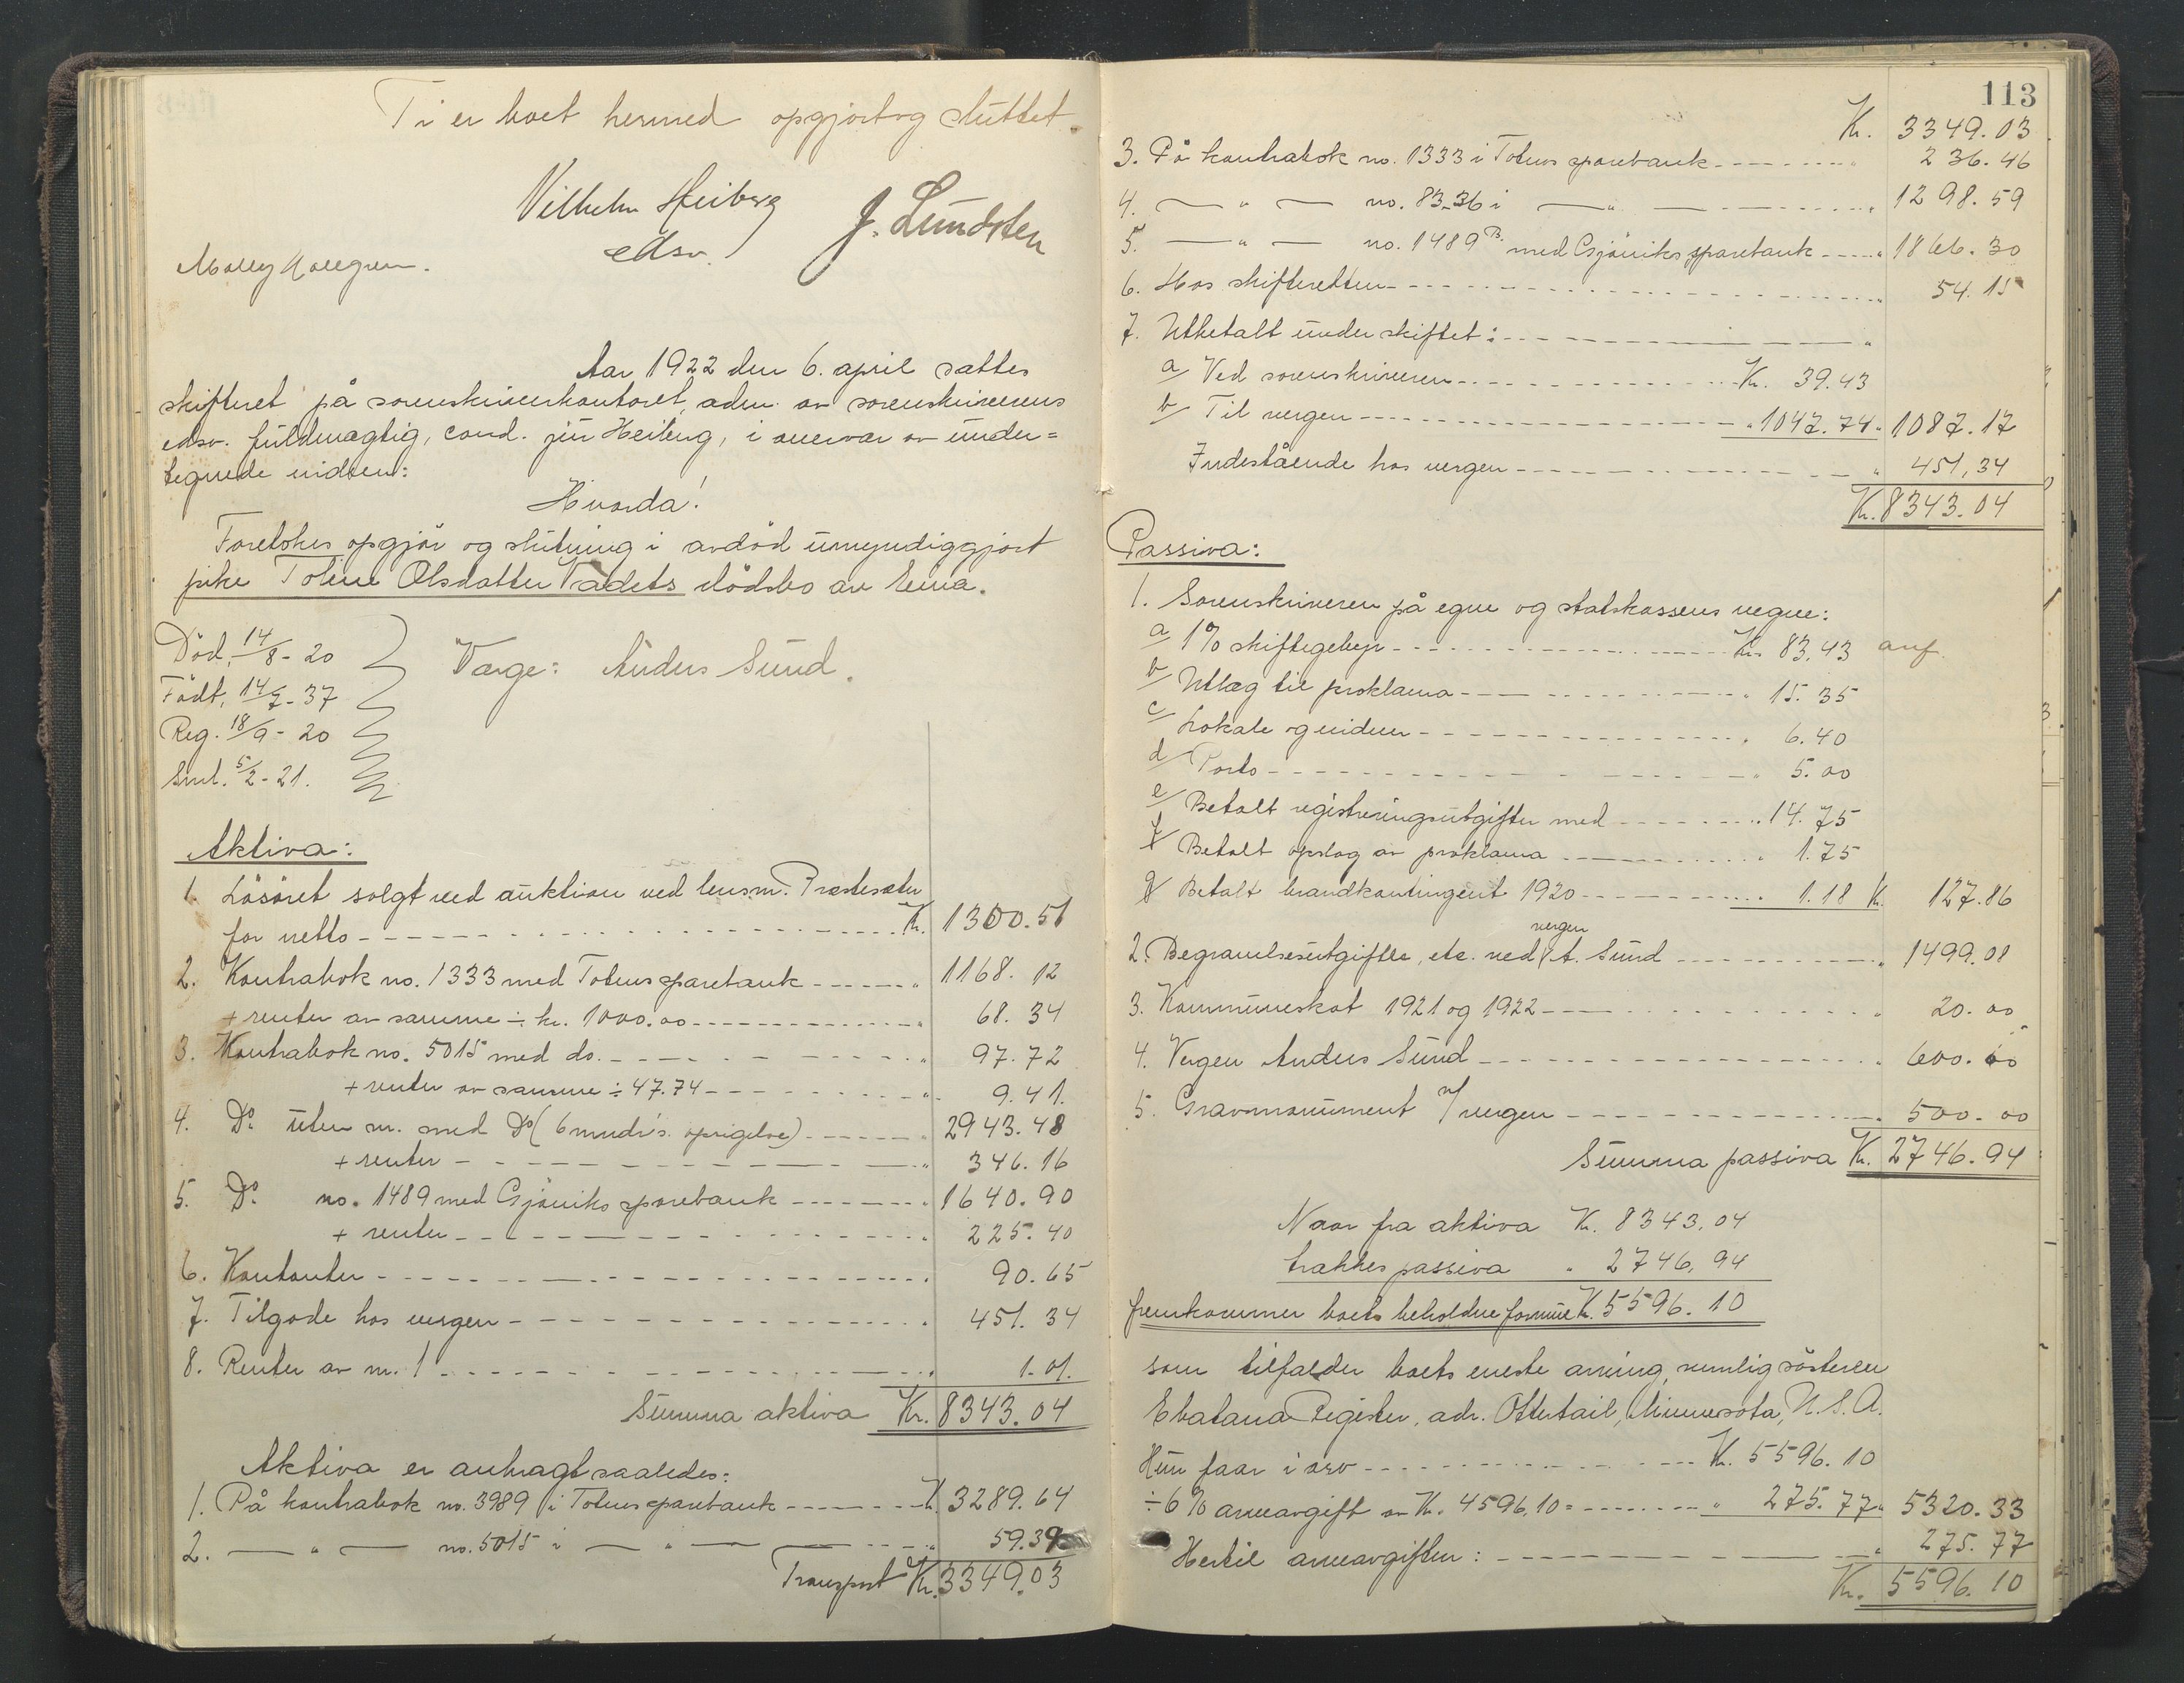 Ti er boet hermed opgjort og sluttet.
Vilhelm Heiberg
edsv.
J. Lundsten
Aar 1922 den 6. april sattes
skifteret på sorenskriverkontoret, adm. av sorenskriverens
edsv. fuldmægtig, cand. jur Heiberg, i overvær av under=
tegnede vidner:
Hvorda!
Foretokes opgjør og slutning i avdød umyndiggjort
pike Toline Olsdatter Vadets dødsbo av Eina.
Død, 14/8 - 20
Født, 14/7 - 37
Reg. 18/9 - 20
Sml. 5/2 - 21.
Værge: Anders Sund.
Aktiva:
1. Løsøret solgt ved auktion ved lensm. Præstesæter
for netto - Kr. 1300.51
2. Kontrabok no. 1333 med Totens sparebank - " 1168.12
+ renter av samme ÷ kr. 1000.00 - " 68.34
3. Kontrabok no. 5015 med do. - " 97.72
+ renter av samme ÷ 47.74 - " 9.41.
4. Do. uten nr. med Do (6 mndr's. opsigelse) - " 2943.48
+ renter - " 346.16
5. Do. no. 1489 med Gjøviks sparebank - " 1640.90
+ renter - " 225.40
6. Kontanter - " 90.65
7. Tilgode hos vergen - " 451.34
8. Renter av nr. 1 - " 1.01.
Summa aktiva Kr. 8343.04
Aktiva er anbragt saaledes:
1. På kontrabok no. 3989 i Totens sparebank - Kr. 3289.64
2. — " — no. 5015 i — " — " 59.39
Transport Kr. 3349.03
113
Kr. 3349.03
3. På kontrabok no. 1333 i Totens sparebank - " 236.46
4. — " — no. 8336 i — " — " 1298.59
5. — " — no. 1489 B. med Gjøviks sparebank - " 1866.30
6. Hos skifteretten - " 54.15
7. Utbetalt under skiftet: - "
a/ Ved sorenskriveren - Kr. 39.43
b/ Til vergen - " 1047.74 " 1087.17
Indestående hos vergen - " 451,34
Kr. 8343.04
Passiva:
1. Sorenskriveren på egne og statskassens vegne:
a/ 1% skiftegebyr - Kr. 83.43 anf.
b/ Utlæg til proklama - " 15.35
c/ Lokale og vidner - " 6.40
d/ Porto - " 5.00
e/ Betalt registreringsutgifter med - " 14.75
f/ Betalt opslag av proklama - " 1.75
g/ Betalt brandkontingent 1920 - " 1.18 Kr. 127.86
2. Begravelsesutgifter, etc. ved vergen A. Sund - " 1499.08
3. Kommuneskat 1921 og 1922 - " 20.00
4. Vergen Anders Sund - " 600.00
5. Gravmonument v/ vergen - " 500.00
Summa passiva Kr. 2746.94
Naar fra aktiva Kr. 8343.04
trækkes passiva " 2746,94
fremkommer boets beholdne formue Kr. 5596.10
som tilfalder boets eneste arving, nemlig søsteren
Register, adr. Ottertail, Minnesota, U.S.A.
Hun faar i arv - Kr. 5596.10
÷ 6% arveavgift av Kr. 4596,10 = - " 275.77 " 5320.33
Hertil arveavgiften: - " 275.77
Kr. 5596.10